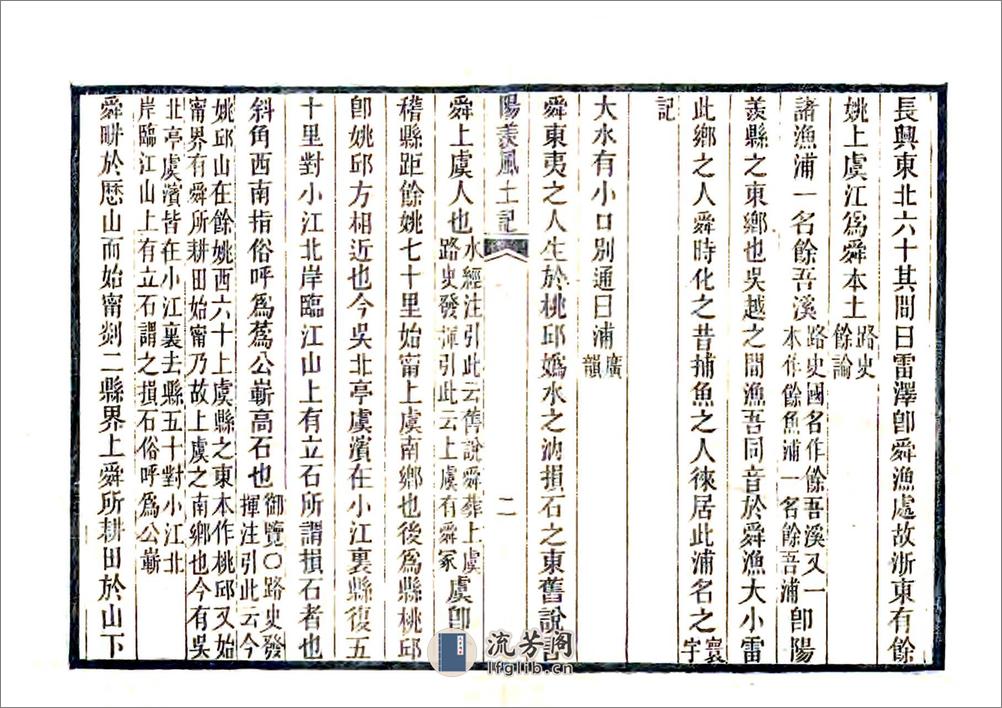 長興東北六十其間曰雷澤卽舜漁處故浙東有餘
姚上虞江爲舜本土路史餘論
諸漁浦一名餘吾溪路史國名作餘吾溪又一本作餘魚浦一名餘吾浦卽陽
羨縣之東鄉也吳越之間漁吾同音於舜漁大小雷
此鄉之人舜時化之昔捕魚之人徠居此浦名之寰宇
記
大水有小口別通曰浦廣韻
舜東夷之人生於桃邱嬀水之汭損石之東舊說言
陽羨風土記
二
舜上虞人也水經注引此云舊說舜葬上虞路史發揮引此云上虞有舜冢虞卽
稽縣距餘姚七十里始甯上虞南鄉也後爲縣桃邱
卽姚邱方相近也今吳北亭虞濱在小江裏縣復五
十里對小江北岸臨江山上有立石所謂損石者也
斜角西南指俗呼爲蔿公嶄高石也御覽〇路史發揮注引此云今
姚邱山在餘姚西六十上虞縣之東本作桃邱又始
甯界有舜所耕田始甯乃故上虞之南鄉也今有吳
北亭虞濱皆在小江裏去縣五十對小江北
岸臨江山上有立石謂之損石俗呼爲公嶄
舜畊於歷山而始甯剡二縣界上舜所耕田於山下
流芳阁
lfglib.cn